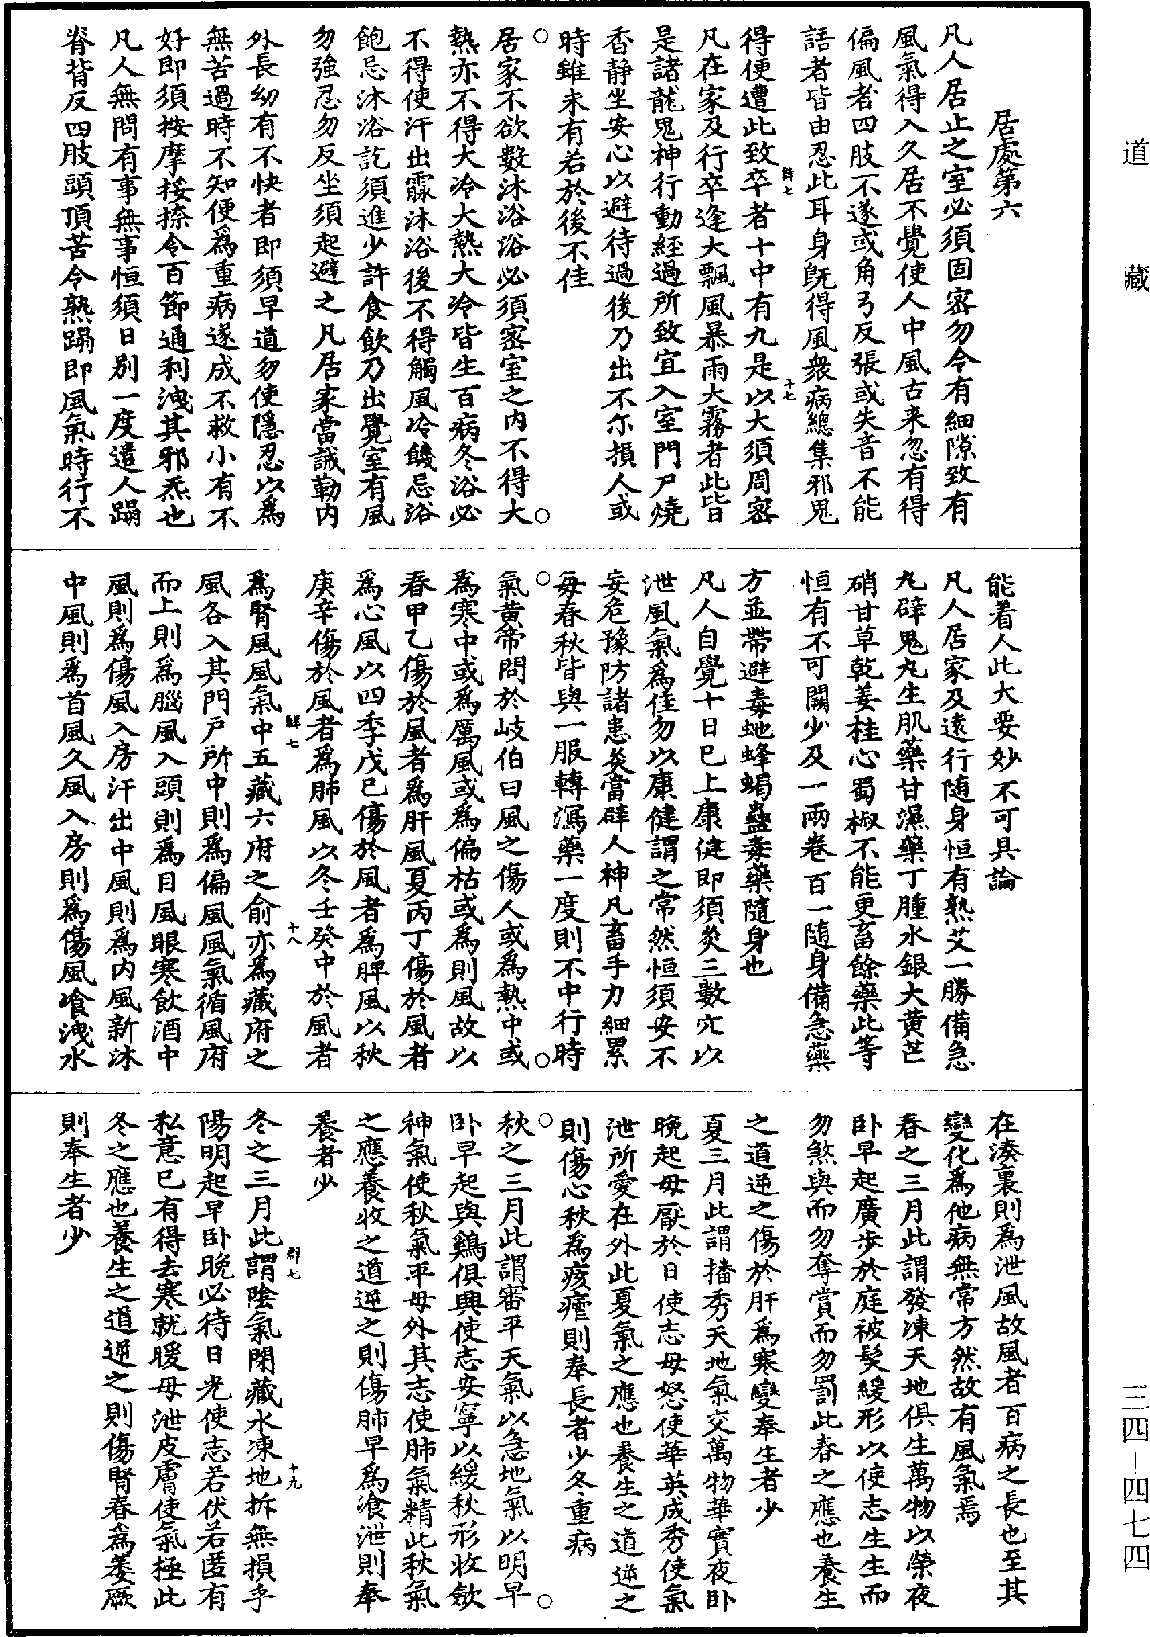 道藏
三四－四七四
居處第六
凡人居止之室必須固密勿令有細隙致有
風氣得入久居不覺使人中風古来忽有得
偏風者四肢不遂或角弓反張或失音不能
語者皆由忍此耳身既得風衆病總集邪鬼
得便遭此致卒者十中有九是以大須周密
凡在家及行卒逢大飄風暴雨大霧者此皆
是諸龍鬼神行動經過所致宜入室門户燒
香静坐安心以避待過後乃出不尓損人或
時雖未有若於後不佳
居家不欲數沐浴浴必須密室之内不得大
熱亦不得大冷大熱大冷皆生百病冬浴必
不得使汗出霡沐浴後不得觸風冷饑忌浴
飽忌沐浴訖須進少許食飲乃出覺室有風
勿強忍勿反坐須起避之凡居家當誡勒内
外長幼有不快者即須早道勿使隱忍以為
無苦過時不知便為重病遂成不救小有不
好即須按摩挼捺令百節通利洩其邪炁也
凡人無問有事無事恒須日别一度遣人蹋
脊背反四肢頭頂苦令熟蹋即風氣時行不
能着人此大要妙不可具論
凡人居家及遠行隨身恒有熟艾一勝備急
丸辟鬼丸生肌藥甘濕藥丁腫水銀大黄芒
硝甘草乾姜桂心蜀椒不能更畜餘藥此等
恒有不可闕少及一兩卷百一隨身備急藥
方並帶避毒虵蜂蝎蠱毒藥隨身也
凡人自覺十日已上康健即須灸三數穴以
泄風氣為佳勿以康健謂之常然恒須安不
妄危豫防諸患灸當辟人神凡畜手力細累
每春秋皆與一服轉瀉藥一度則不中行時
氣黄帝問於岐伯曰風之傷人或為熱中或
為寒中或為厲風或為偏枯或為則風故以
春甲乙傷於風者為肝風夏丙丁傷於風者
為心風以四季戊巳傷於風者為脾風以秋
庚辛傷於風者為肺風以冬壬癸中於風者
為腎風風氣中五藏六府之俞亦為藏府之
風各入其門户所中則為偏風風氣循風府
而上則為腦風入頭則為目風眼寒飲酒中
風則為傷風入房汗出中風則為内風新沐
中風則為首風久風入房則為傷風飡洩水
在湊裏則為泄風故風者百病之長也至其
變化為他病無常方然故有風氣焉
春之三月此謂發凍天地俱生萬物以榮夜
卧早起廣步於庭被髮緩形以使志生生而
勿煞與而勿奪賞而勿罰此春之應也養生
之道逆之傷於肝為寒變奉生者少
夏三月此謂播秀天地氣交萬物華實夜卧
晚起毋厭於日使志毋怒使華英成秀使氣
泄所愛在外此夏氣之應也養生之道逆之
則傷心秋為痎瘧則奉長者少冬重病
秋之三月此謂審平天氣以急地氣以明早
卧早起與鷄俱興使志安寧以緩秋形收歛
神氣使秋氣平毋外其志使肺氣精此秋氣
之應養收之道逆之則傷肺早為飡泄則奉
養者少
冬之三月此謂陰氣閉藏水凍地拆無損乎
陽明起早卧晚必待日光使志若伏若匿有
私意已有得去寒就暖毋泄皮膚使氣極此
冬之應也養生之道逆之則傷腎春為萎厥
則奉生者少
群七
十七
群七
十八
群七
十九